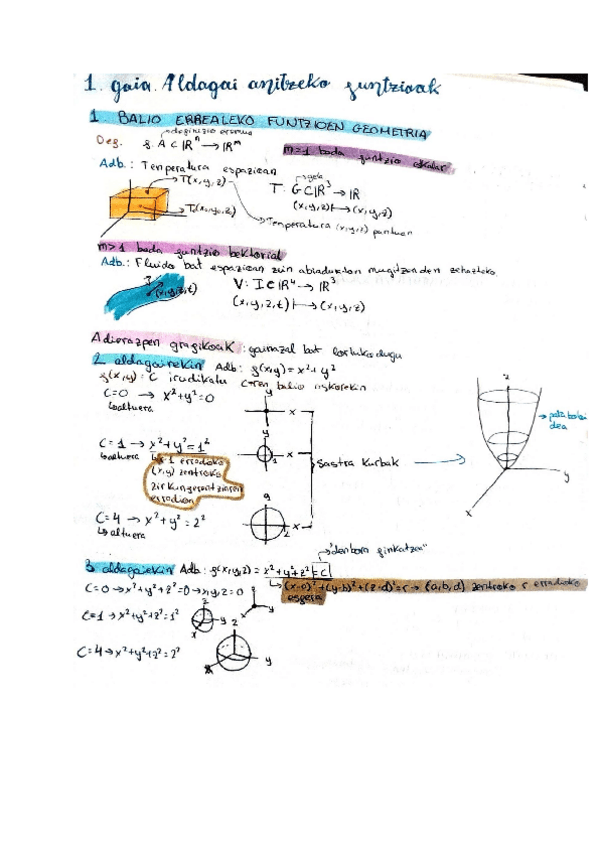 1. gaia. Aldagai anitzeko funtzioak
1 BALIO ERREALEKO FUNTZIOEN GEOMETRIA
definizio eremua
Def. f: A ⊂ ℝⁿ → ℝᵐ
m=1 bada funtzio eskalar
Adb.: Tenperatura espazioan
T(x,y,z)
gela
T: G ⊂ ℝ³ → ℝ
(x,y,z) ↦ (x,y,z)
T(x,y,z)
Tenperatura (x,y,z) puntuan
m>1 bada funtzio bektorial
Adb.: Fluido bat espazioan zein abiaduratan mugitzen den zehazteko
(x,y,z,t)
V: I ⊂ ℝ⁴ → ℝ³
(x,y,z,t) ↦ (x,y,z)
Adierazpen grafikoak: gainazal bat lortuko dugu
2 aldagairekin Adb: f(x,y) = x²+y²
f(x,y) = C irudikatu C-ren balio ezkorekin
C=0 → x²+y²=0
↳altuera
y
x
C=1 → x²+y²=1²
↳altuera
↳ 1 erradioko
(x,y) zentroko
zirkunferentziaren
erradioa
y
1
x
Sastra Kurbak
z
paraboloidea
y
x
C=4 → x²+y²=2²
↳altuera
y
2
x
"denbora finkatzea"
3 aldagairekin Adb: f(x,y,z) = x²+y²+z² = C
↳ (x-a)²+(y-b)²+(z-d)²=r → (a,b,d) zentroko r erradioko
esfera
C=0 → x²+y²+z²=0 → x,y,z=0
z
y
x
C=1 → x²+y²+z²=1²
z
y
x
C=4 → x²+y²+z²=2²
z
y
x